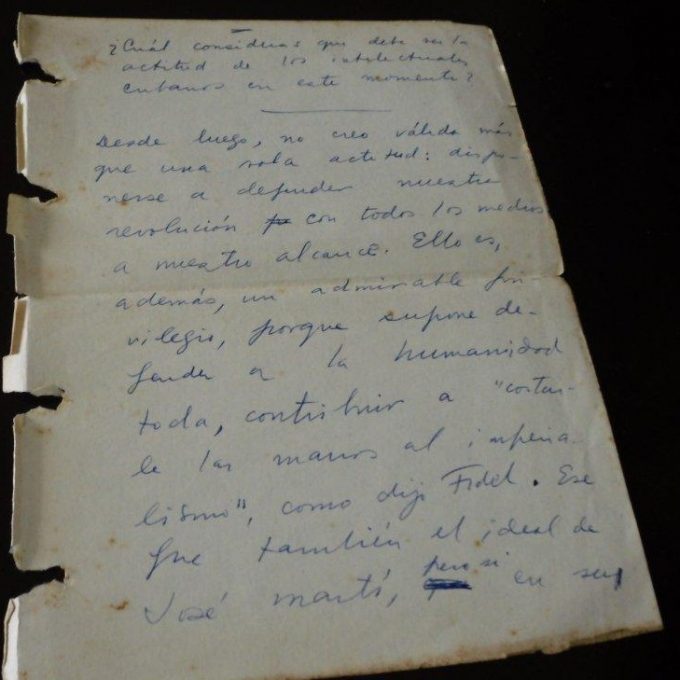 ¿Cuál consideras que debe ser la
actitud de los intelectuales
cubanos en este momento?
Desde luego, no creo válida más
que una sola actitud: dispo-
nerse a defender nuestra
revolución con todos los medios
a nuestro alcance. Ello es,
además, un admirable pri-
vilegio, porque supone de-
fender a la humanidad
toda, contribuir a "cortar-
le las manos al imperia-
lismo", como dijo Fidel. Ese
fue también el ideal de
José Martí, pero si en su